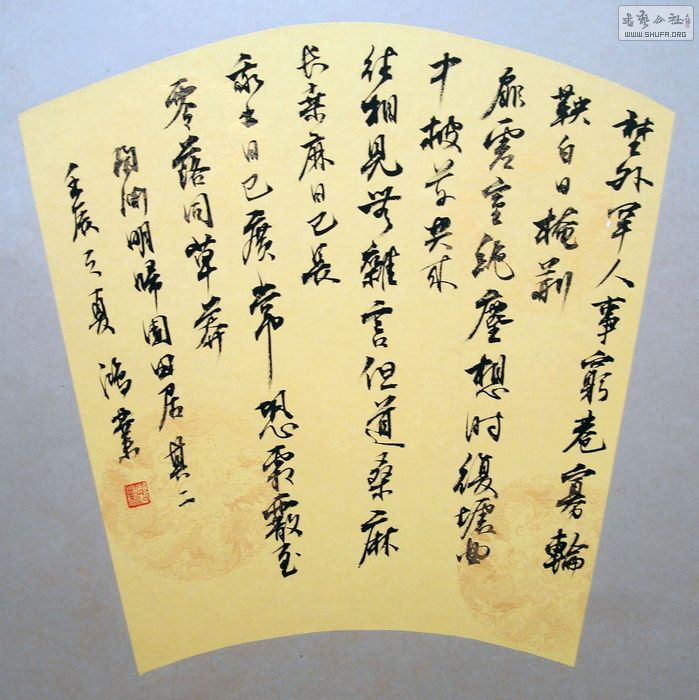 埜外罕人事窮巷寡輪
鞅白日掩荆
扉虚室絶塵想时復墟曲
中披草共来
往相見無雜言但道桑麻
长桑麻日已長
我土日已廣常恐霜霰至
零落同草莽
陶渊明歸園田居其二
壬辰之夏 鴻業
書藝公社
WWW.SHUFA.ORG